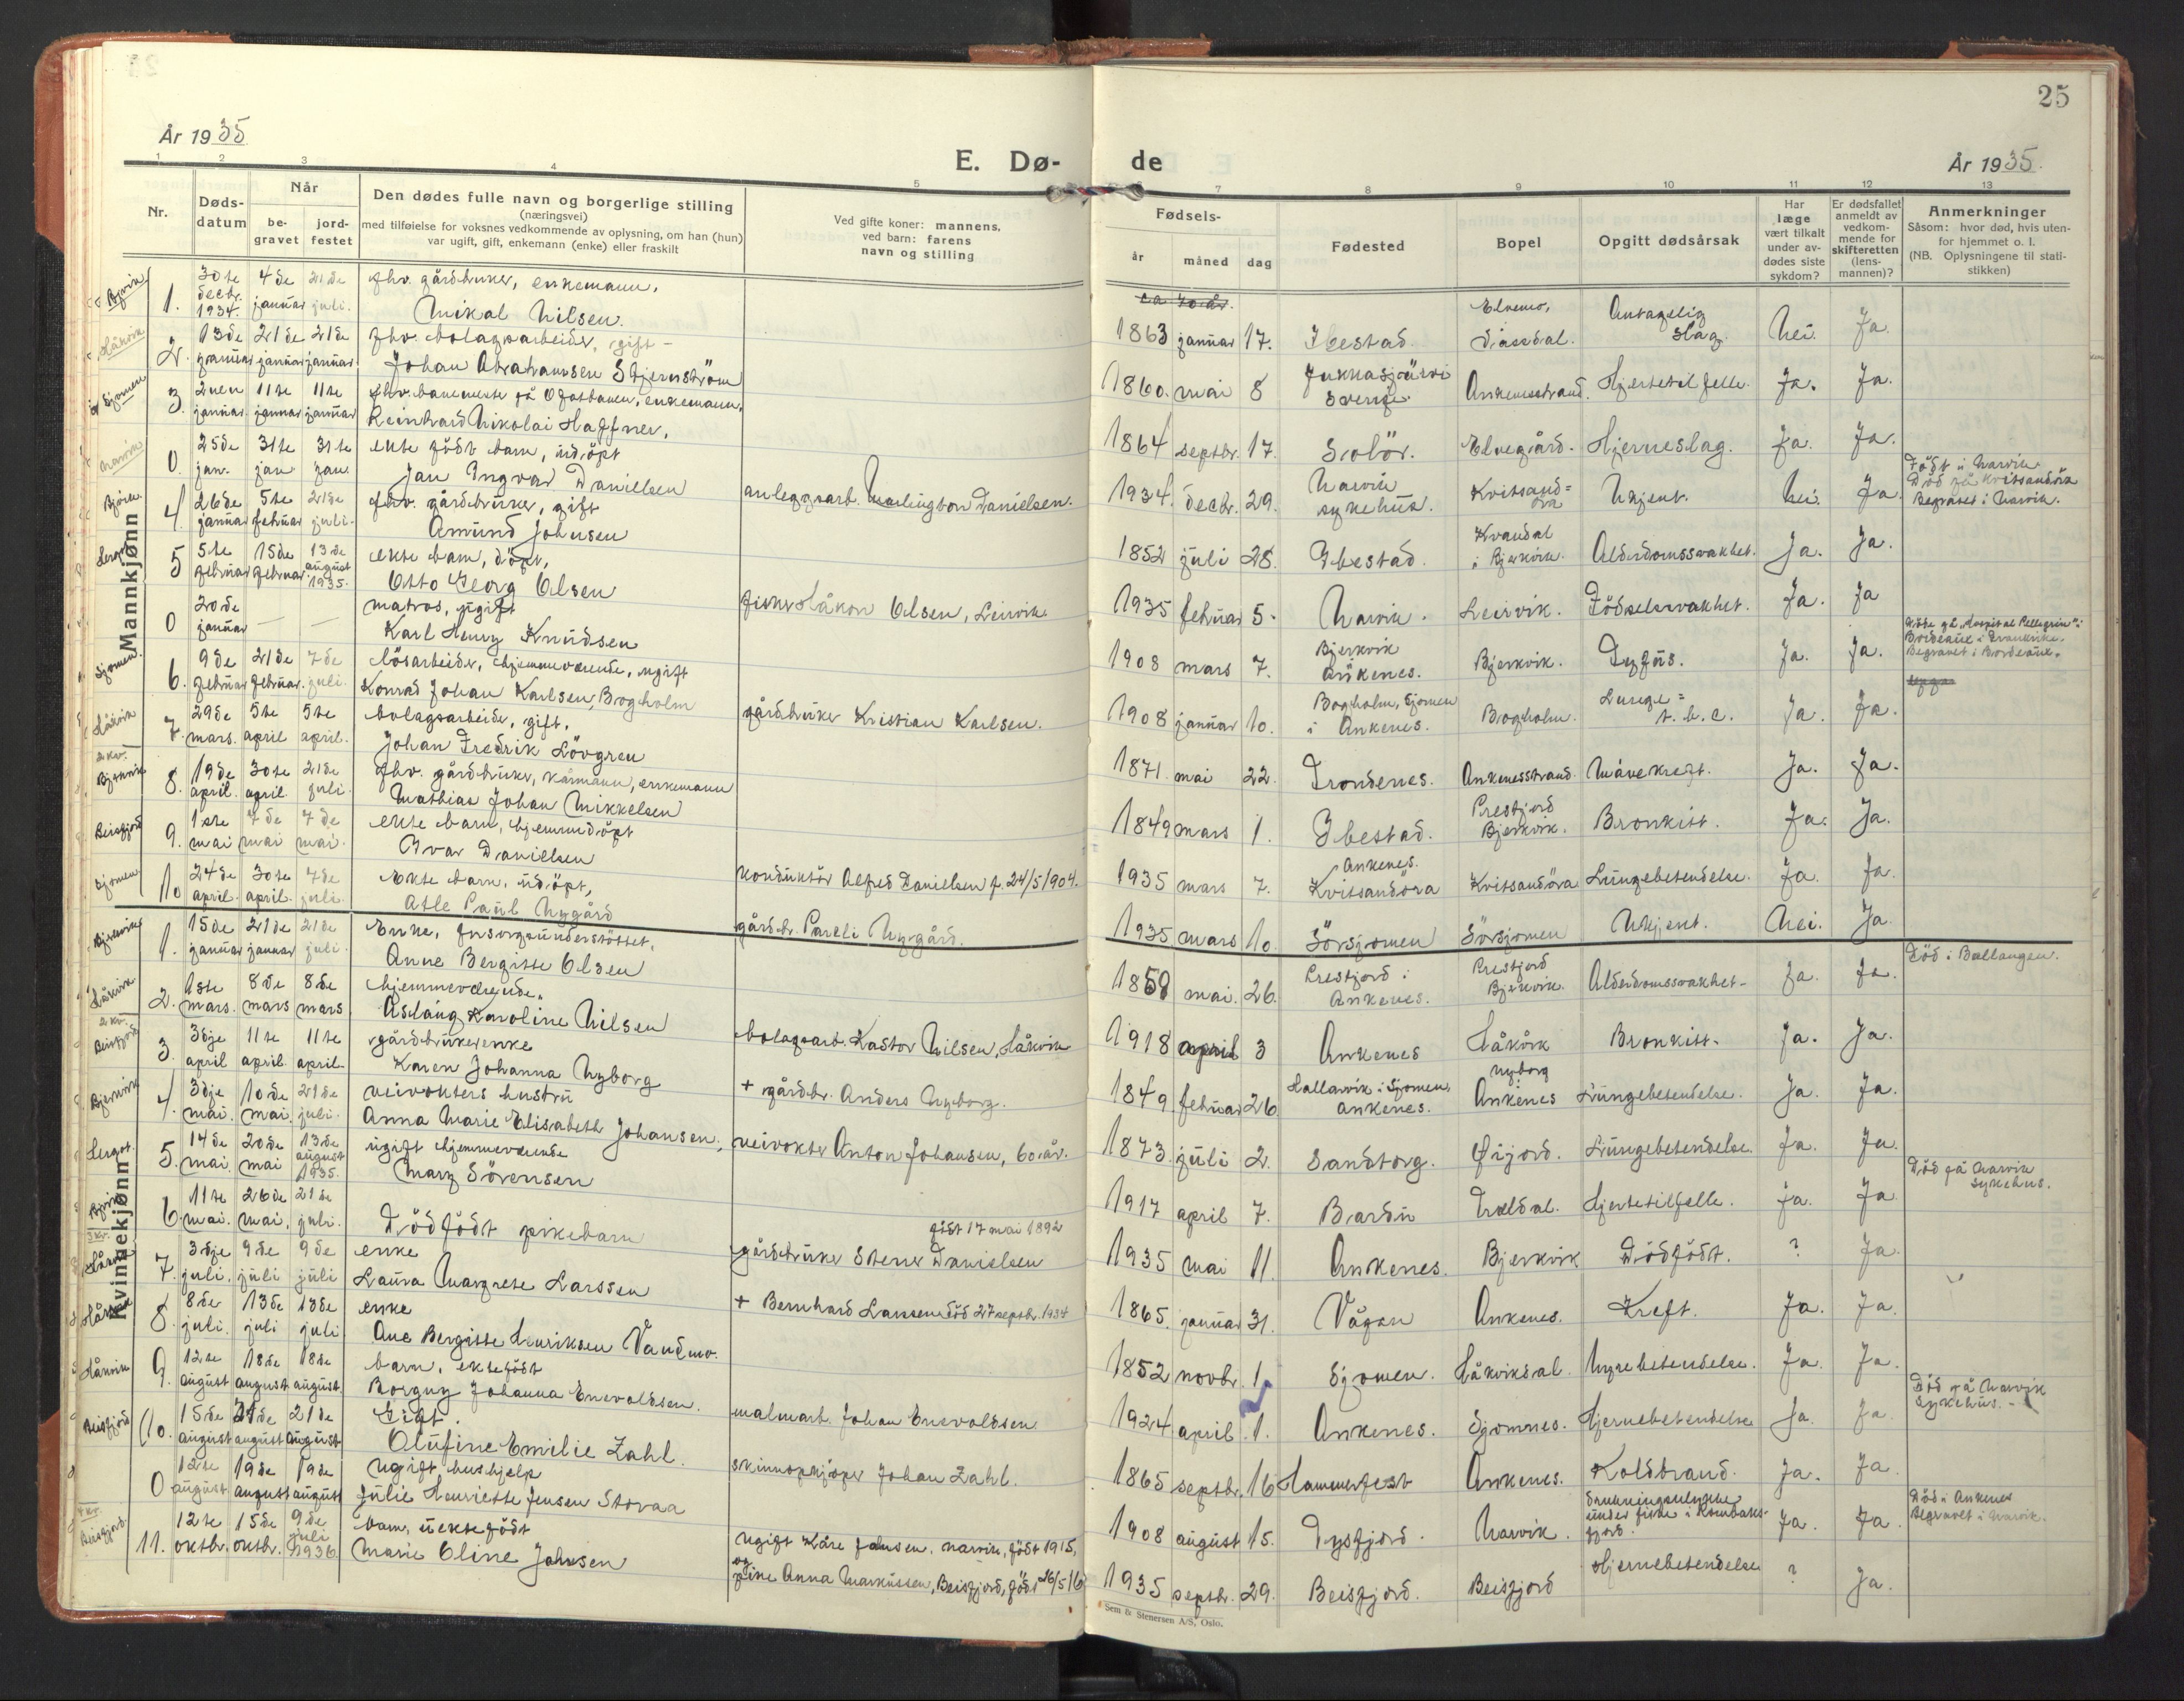 År 1935
E. Dø-
de
År 1935.
25
1 2 3 4 5
7 8 9 10 11 12 13
Nr.
Døds-
datum
Når
be-
gravet
jord-
festet
Den dødes fulle navn og borgerlige stilling
(næringsvei)
med tilføielse for voksnes vedkommende av oplysning, om han (hun)
var ugift, gift, enkemann (enke) eller fraskilt
Ved gifte koner: mannens,
ved barn: farens
navn og stilling
Fødsels-
år måned dag
Fødested
Bopel
Opgitt dødsårsak
Har
læge
vært tilkalt
under av-
dødes siste
sykdom?
Er dødsfallet
anmeldt av
vedkom-
mende for
skifteretten
(lens-
mannen)?
Anmerkninger
Såsom: hvor død, hvis uten-
for hjemmet o. l.
(NB. Oplysningene til stati-
stikken)
Mannkjønn
Bjvik 1. 30te decbr. 1934. 4de januar 21de juli. fhv. gårdbruker, enkemann,
Mikal Nilsen.
ca 70 år.
1863 januar 17. Ibestad. Elvemo, Ja.
Antagelig slag. Nei.
Håkvik 2. 13de januar 21de januar 21de januar. fhv. bolagsarbeider, gift -
Johan Abrahamsen Stjernström
1860. mai 8 Jukkasjärvi Sverige. Ankenesstrand. Hjertetilfelle. Ja. Ja.
Sjomen 3. 2nen januar. 11te januar 11te januar fhv. banemester på Ofotbanen, enkemann,
Reinhard Nikolai Haffner,
1864 septbr. 17. Solör. Elvegård. Hjerneslag. Ja. Ja.
Narvik 0. 25de jan. 31te jan 31te jan. ekte födt barn, udöpt
Jan Ingvar Danielsen
anleggsarb. Danielsen.
1934. decbr. 29. Narvik sykehus. Kvitsand= öra Ukjent. Nei. Ja.
Födt i Narvik
Död på Kvitsandöra
Begravet i Narvik.
Bjerkv. 4. 26de januar 5te februar 21de juli. fhv. gårdbruker, gift
Amund Johnsen
1852 juli 28. Ibestad. Kvandal i Bjerkvik. Alderdomssvakhet. Ja. Ja.
5 5te februar 15de februar 13de august 1935. ekte barn, döpt,
Otto Georg Olsen
fisker Håkon Olsen, Leirvik
1935 februar 5. Narvik. Leirvik. Födselssvakhet. Ja. Ja
0 20de januar — — matros, ugift
Karl Henry Knudsen
1908 mars 7. Bjerkvik Ankenes. Bjerkvik. Tyfus. Ja. Ja.
Döde på "Hospital Pellegrin" i
Bordeaux i Frankrike.
Begravet i Bordeaux.
Sjomen. 6. 9de februar 21de februar. 7de juli. lösarbeider, hjemmeværende, ugift
Konrad Johan Karlsen, Bogholm
gårdbruker Kristian Karlsen.
1908 januar 10. Bogholm, Sjomen i Ankenes. Bogholm. Lunge= t.b.c. Ja. Ja.
Håkvik 7. 29de mars. 5te april 5te april. bolagsarbeider, gift,
Johan Fredrik Lövgren
1871. mai 22. Trondenes. Ankenesstrand. Mavekreft. Ja. Ja.
2 kv.
Bjerkvik 8. 19de april. 30te april. 21de juli. fhv. gårdbruker, kårmann, enkemann
Mathias Johan Mikkelsen
1849 mars 1. Ibestad. Prestjord Bjerkvik. Bronkitt. Ja. Ja.
Beisfjord 9. 1ste mai 7de mai 7de mai. ekte barn, hjemmedöpt
Ivar Danielsen
konduktör Alfred Danielsen f. 24/5 1904.
1935 mars 7. Ankenes. Kvitsandöra Kvitsandöra Lungebetendelse. Ja. Ja.
Sjomen 10 24de april. 30te april. 7de juli. ekte barn, udöpt,
Atle Paul Nygård
gårdbr. Pareli Nygård.
1935 mars 10. Sörsjomen Sörsjomen Ukjent. Nei. Ja.
Kvinnekjønn
Bjerkvik 1. 15de januar 21de januar 21de juli. Enke, forsorgsunderstöttet,
Anne Bergitte Olsen
1850 mai. 26. Prestjord i Ankenes. Prestjord Bjerkvik. Alderdomssvakhet. Ja. Ja.
Död i Ballangen.
Håkvik 2. 1ste mars. 8de mars 8de mars hjemmeværende.
Aslaug Karoline Nilsen
bolagsarb. Kastor Nilsen, Håkvik
1918 april 3 Ankenes Håkvik Bronkitt. Ja. Ja.
2 kv.
Beisfjord 3. 3dje april 11te april. 11te april. gårdbrukerenke
Karen Johanna Nyborg
+ gårdbr. Anders Nyborg.
1849. februar 26. Hallarvik i Sjomen, Ankenes. Nyborg i Ankenes Lungebetendelse. Ja. Ja.
Bjerkvik 4. 3dje mai. 10de mai. 21de juli. veivokters hustru
Anna Marie Elisabeth Johansen,
veivokter Anton Johansen, 60 år.
1873. juli 2. Sandtorg. Öijord. Lungebetendelse. Ja. Ja.
5. 14de mai. 20de mai 13de august 1935. ugift hjemmeværende
Mary Sörensen
1917 april 7. Bardu Traldal. Hjertetilfelle. Ja. Ja.
Död på Narvik
sykehus.
Bjvik 6. 11te mai. 26de mai. 21de juli. Dödfödt pikebarn
född 17 mai 1892
gårdbruker Sterner Danielsen
1935 mai 11. Ankenes. Bjerkvik Dödfödt. ? Ja.
3 kv.
7. 3dje juli. 9de juli 9de juli enke
Laura Margrete Larssen
+ Bernhard Larssen död 27 septbr. 1934
1865. januar 31. Vågan Ankenes. Kreft. Ja. Ja.
8. 8de juli. 13de juli 13de juli enke
Ane Bergitte Henriksen Vandmo.
1852 novbr. 1. Sjomen. Håkviksal. Nyrebetendelse. Ja. Ja.
Håkvik 9. 12te august 18de august 18de august. barn, ektefödt
Borgny Johanna Enevoldsen.
malmarb. Johan Enevoldsen
1924 april. 1. Ankenes. Sjomnes. Hjernebetendelse Ja. Ja.
Död på Narvik
sykehus. -
Beisfjord 10. 15de august 21de august 21de august Gift.
Olufine Emilie Zahl.
skinnopkjöper Johan Zahl.
1865 septbr. 16 Hammerfest Ankenes. Koldbrand. Ja. Ja.
0 12te august 19de august 19de august ugift hushjelp
Julie Henriette Jensen Storaa
1908 august 15. Tysfjord. Narvik. Drukningsulykke under fiske i Rombaksfjord. Ja. Ja.
Död i Ankenes
Begravet i Narvik.
4 kv.
Beisfjord. 11. 12te oktbr. 15de oktbr. 9de juli 1936. barn, uektefödt
Marie Oline Johnsen
ugift Kåre Johnsen. Narvik, födt 1915,
og
pike Anna Markussen, Beisfjord, födt 26/5 16
1935 septbr. 29. Beisfjord. Beisfjord Hjernebetendelse ? Ja.
Sem & Stenersen A/S, Oslo.